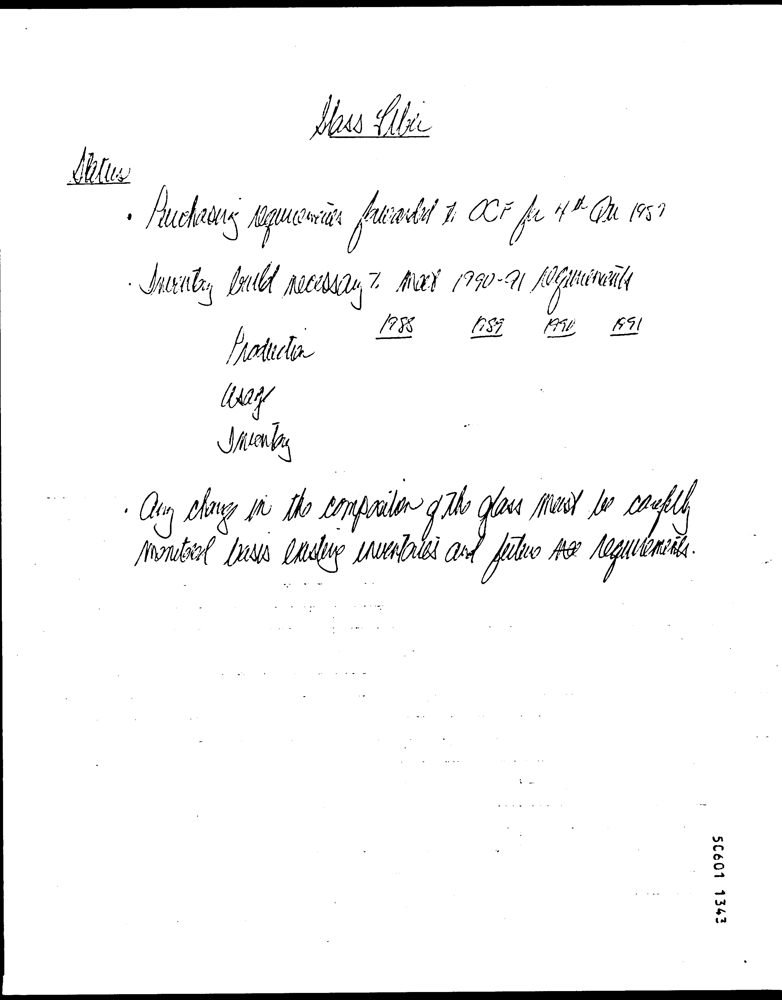 Glass Fiber
Status
· Purchasing requirements forwarded to OCF for 4th Qtr 1987
· Inventory build necessary to meet 1990-91 requirements
1988 1989 1990 1991
Production
Usage
Inventory
· Any change in the composition of the glass must be carefully
monitored basis existing inventories and future requirements.
50601 1343